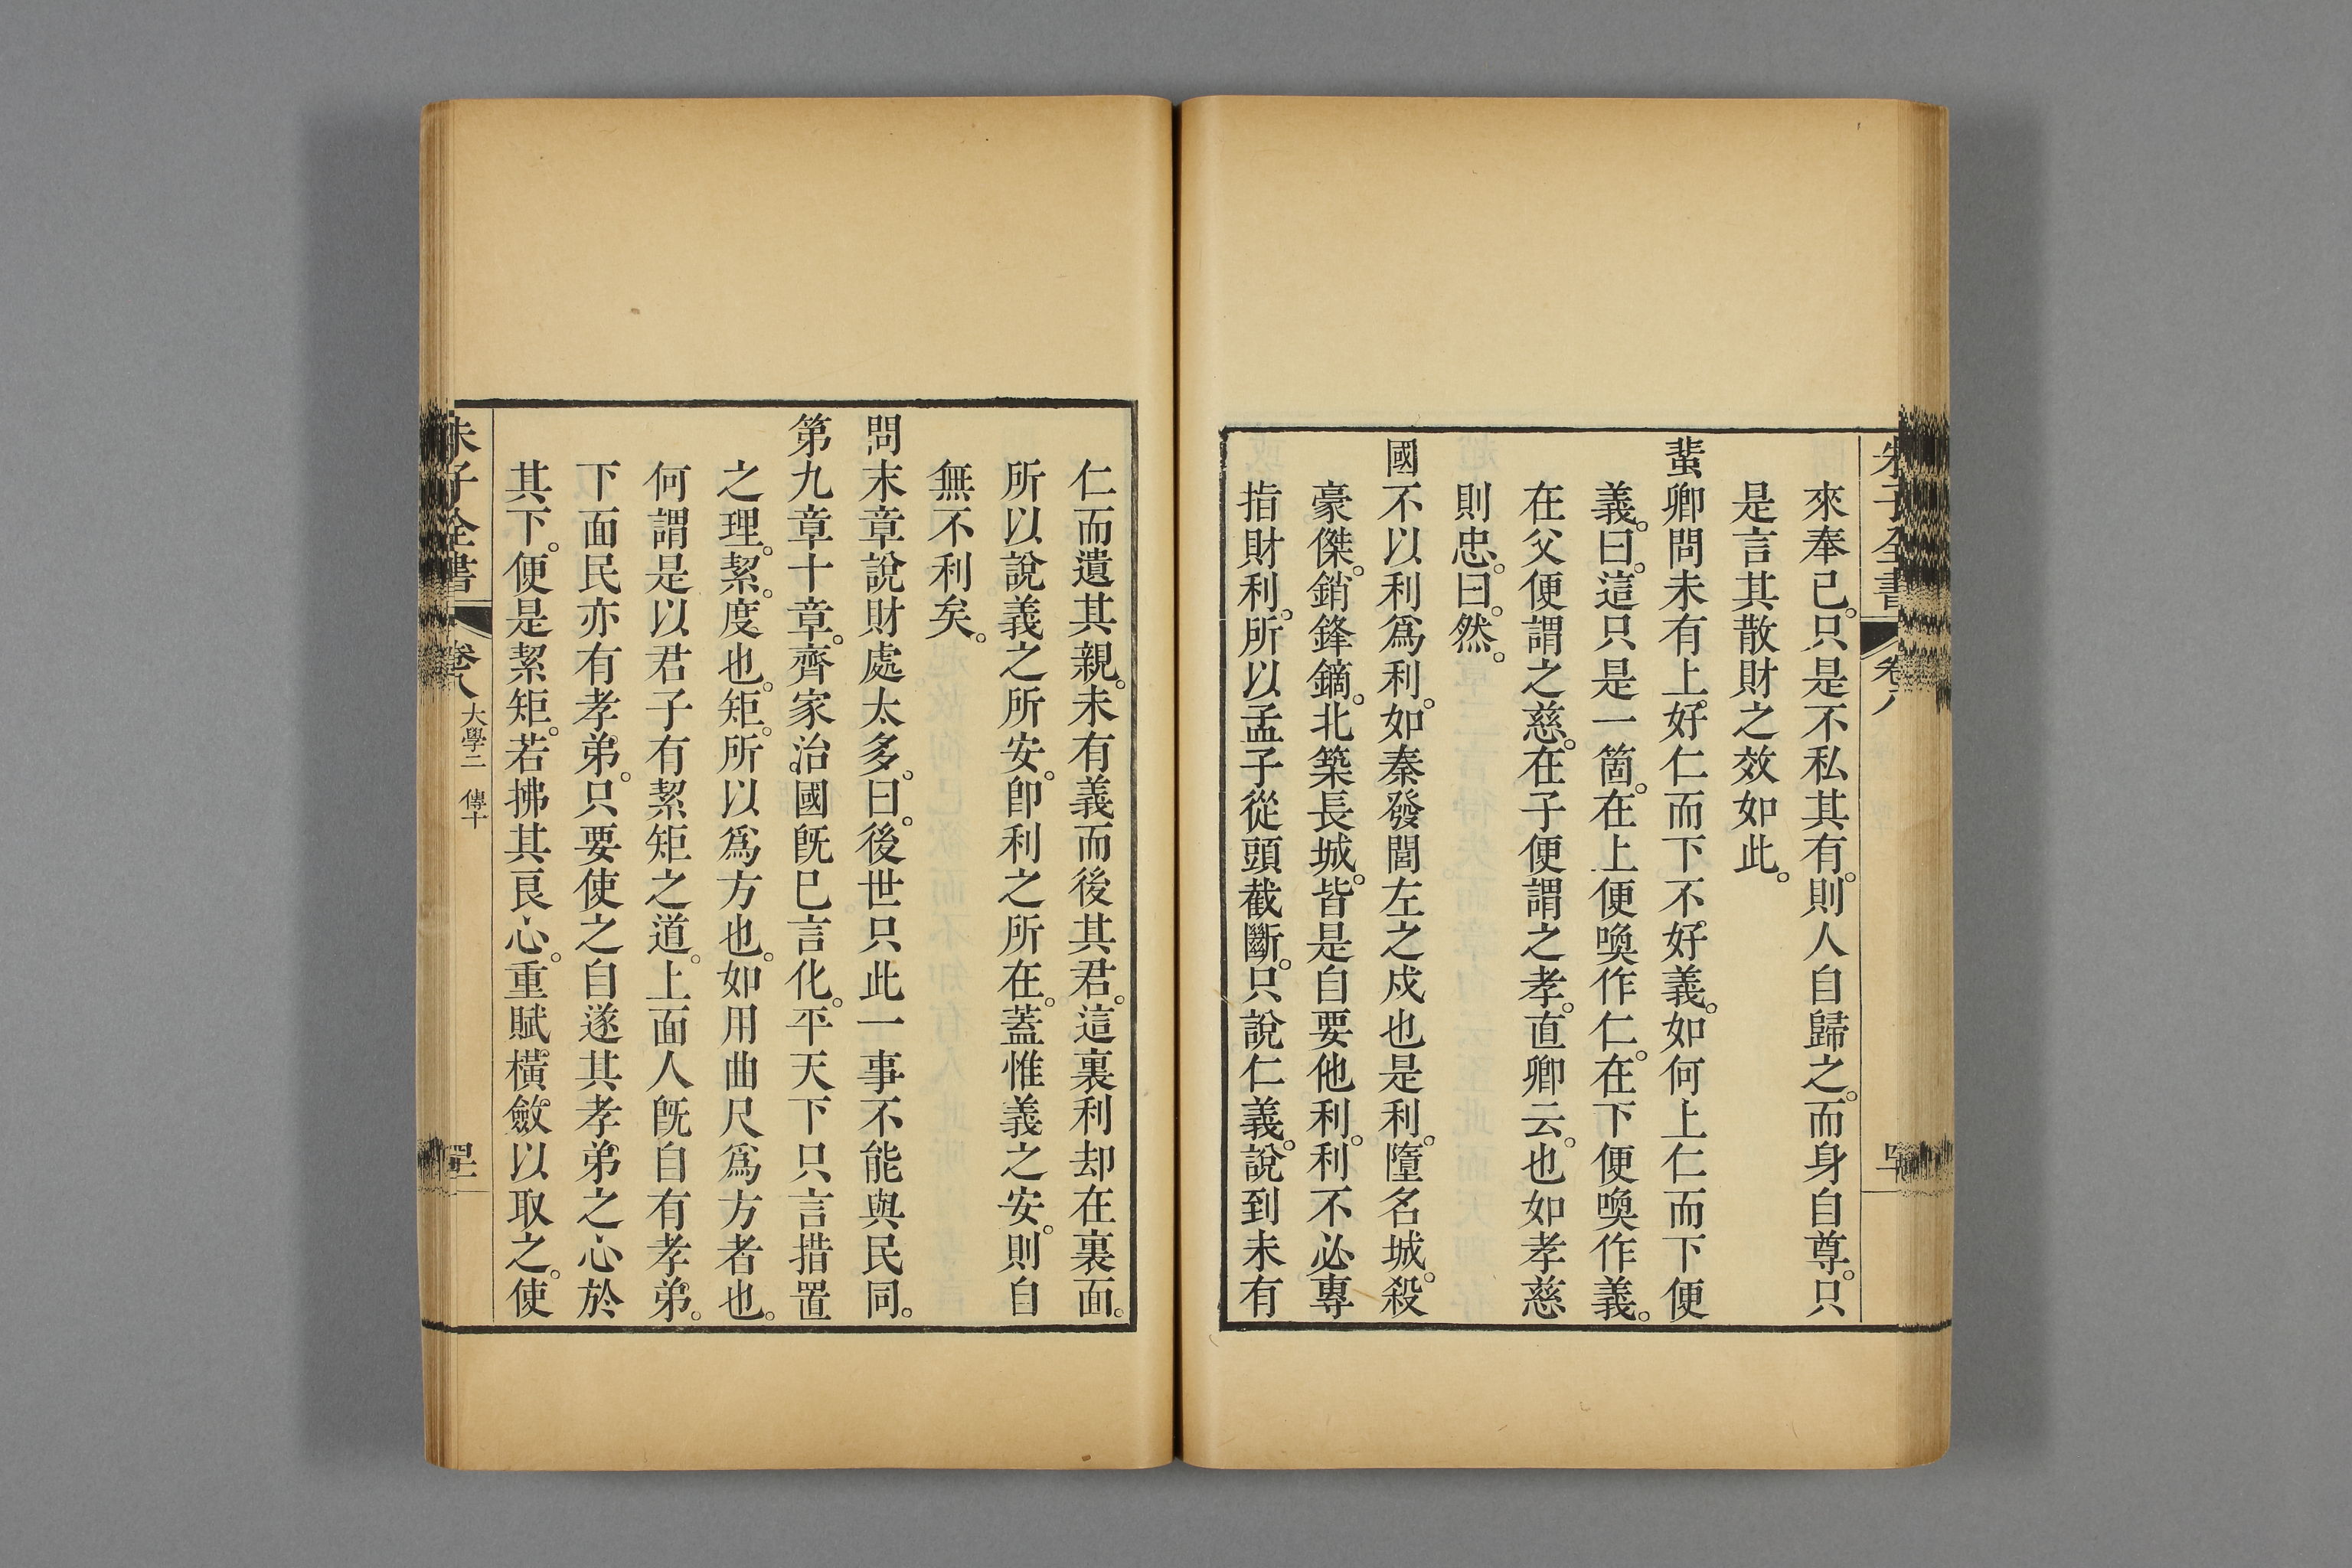 朱子全書
卷八
來奉己。只是不私其有。則人自歸之。而身自尊。只
是言其散財之效如此。
蜚卿問未有上好仁而下不好義。如何上仁而下便
義。曰。這只是一箇。在上便喚作仁。在下便喚作義。
在父便謂之慈。在子便謂之孝。直卿云。也如孝慈
則忠。曰。然。
國不以利爲利。如秦發閭左之戍也是利。墮名城。殺
豪傑。銷鋒鏑。北築長城。皆是自要他利。利不必專
指財利。所以孟子從頭截斷。只說仁義。說到未有
仁而遺其親。未有義而後其君。這裏利却在裏面。
所以說義之所安。卽利之所在。蓋惟義之安。則自
無不利矣。
問末章說財處太多。曰。後世只此一事不能與民同。
第九章十章。齊家治國旣巳言化。平天下只言措置
之理。絜。度也。矩。所以爲方也。如用曲尺爲方者也。
何謂是以君子有絜矩之道。上面人旣自有孝弟。
下面民亦有孝弟。只要使之自遂其孝弟之心於
其下。便是絜矩。若拂其良心。重賦橫斂以取之。使
朱子全書
卷八
大學二 傳十